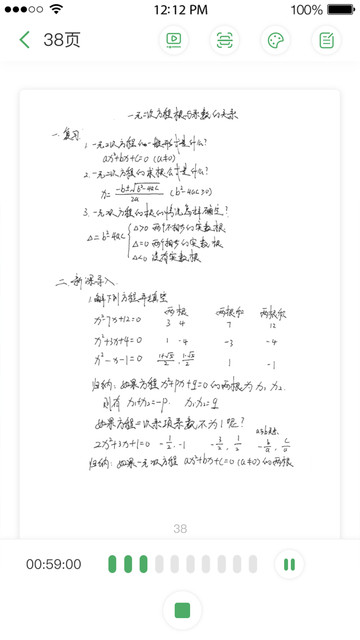 12:12 PM 100%
38页
一元二次方程根与系数的关系
一、复习
1. 一元二次方程的一般形式是什么?
ax²+bx+c=0 (a≠0)
2. 一元二次方程的求根公式是什么?
x= -b±√b²-4ac / 2a (b²-4ac≥0)
3. 一元二次方程的根的情况怎样确定?
Δ=b²-4ac { Δ>0 两个不相等的实数根
Δ=0 两个相等的实数根
Δ<0 没有实数根
二、新课导入
1. 解下列方程并填空
两根 两根和 两根积
x²-7x+12=0 3 4 7 12
x²+3x-4=0 1 -4 -3 -4
x²-x-1=0 1+√5/2, 1-√5/2 1 -1
归纳: 如果方程x²+px+q=0的两根为x₁ x₂
则有 x₁+x₂=-p. x₁x₂=q
如果方程二次项系数不为1呢?
2x²+3x+1=0 -1/2, -1 -3/2, 1/2 -b/a, c/a
归纳: 如果一元二次方程 ax²+bx+c=0 (a≠0) 的两根
38
00:59:00